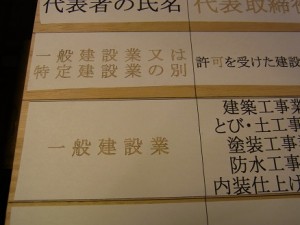 代表者の氏名 代表取締
一般建設業又は
特定建設業の別
許可を受けた建設
一般建設業
建築工事業
とび・土工事
塗装工事
防水工事
内装仕上げ